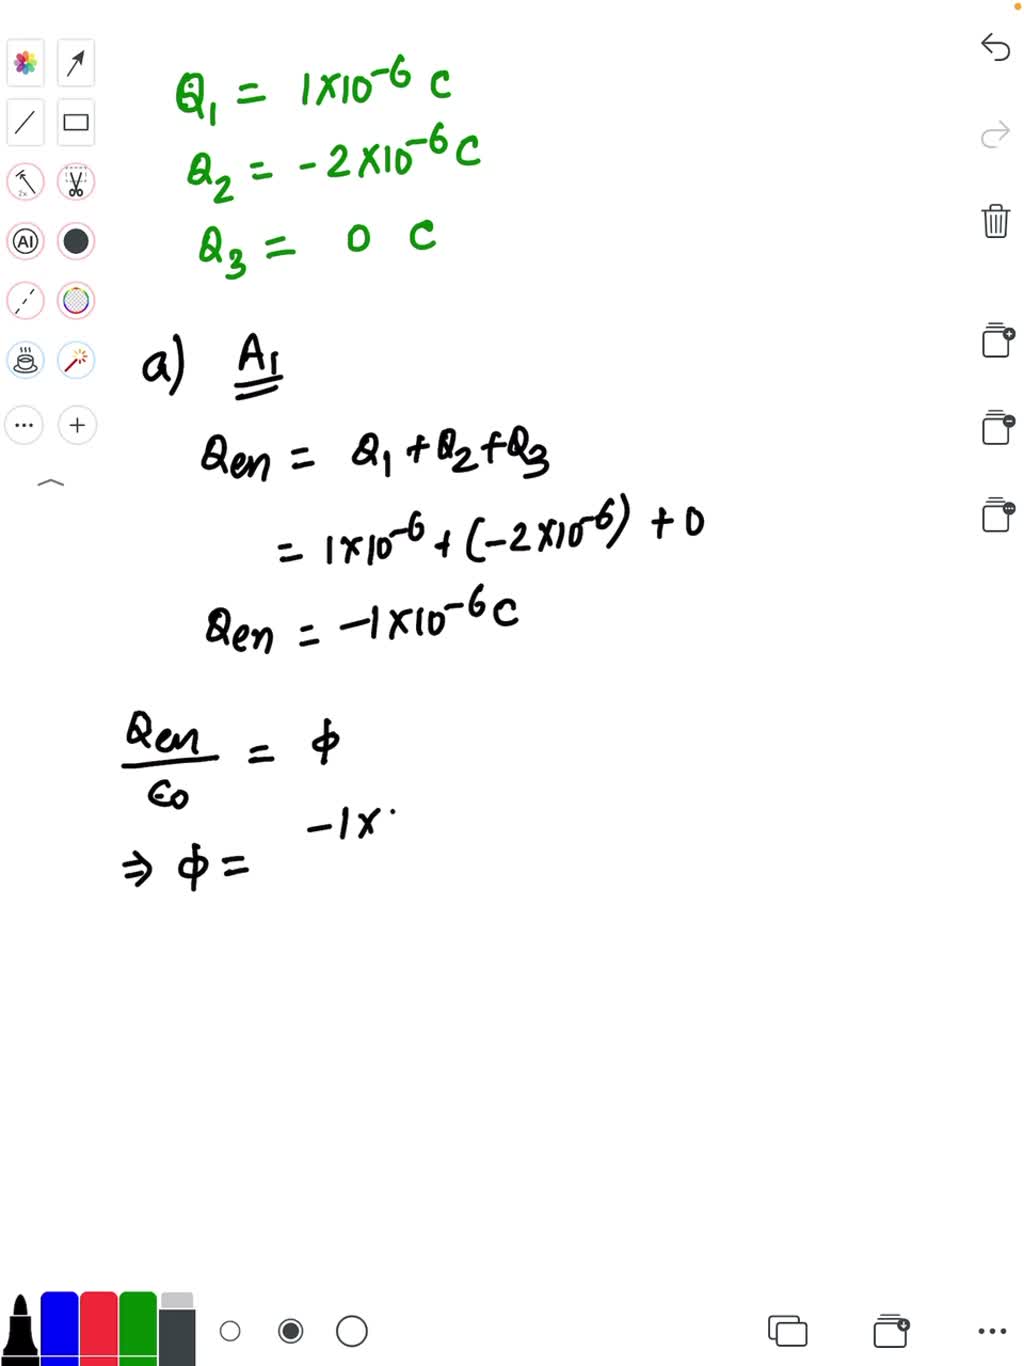 Q₁ = 1×10⁻⁶ C
Q₂ = -2×10⁻⁶ C
Q₃ = 0 C
a) A₁
Qen = Q₁+Q₂+Q₃
= 1×10⁻⁶+(-2×10⁻⁶)+0
Qen = -1×10⁻⁶ C
Qen/ϵ₀ = ϕ
⇒ ϕ = -1×
2x
AI